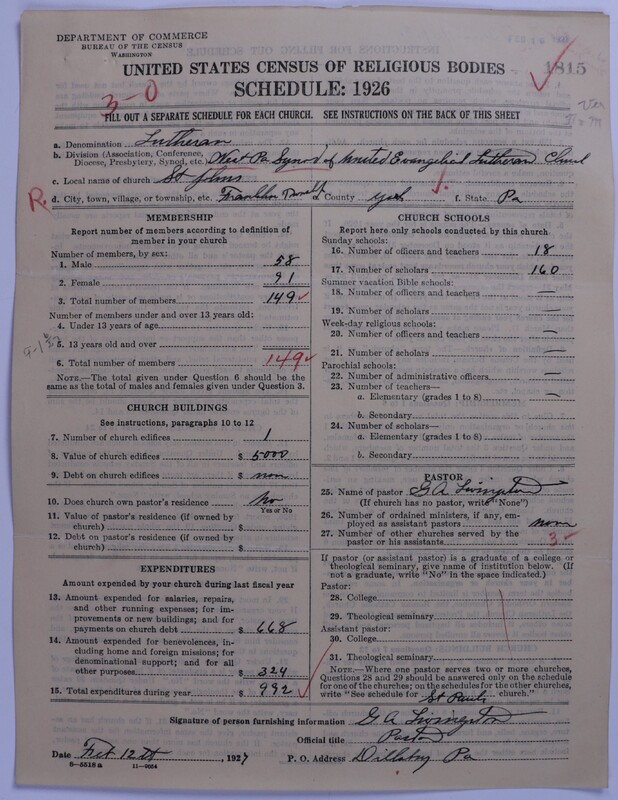 DEPARTMENT OF COMMERCE
BUREAU OF THE CENSUS
WASHINGTON
UNITED STATES CENSUS OF RELIGIOUS BODIES
1815
SCHEDULE: 1926
3-0
FILL OUT A SEPARATE SCHEDULE FOR EACH CHURCH. SEE INSTRUCTIONS ON THE BACK OF THIS SHEET
a. Denomination Lutheran
b. Division (Association, Conference, Diocese, Presbytery, Synod, etc.) West Pa Synod of United Evangelical Lutheran Church
c. Local name of church St Johns
R. d. City, town, village, or township, etc. Franklin e. County York f. State Pa
MEMBERSHIP
Report number of members according to definition of
member in your church
Number of members, by sex:
1. Male 58
2. Female 91
3. Total number of members 149
Number of members under and over 13 years old:
4. Under 13 years of age
5. 13 years old and over
6. Total number of members 149
NOTE.—The total given under Question 6 should be
same as the total of males and females given under Question 3.
CHURCH BUILDINGS
See instructions, paragraphs 10 to 12
7. Number of church edifices 1
8. Value of church edifices $ 5000
9. Debt on church edifices $ none
10. Does church own pastor's residence No
Yes or No
11. Value of pastor's residence (if owned by
church) $
12. Debt on pastor's residence (if owned by
church) $
EXPENDITURES
Amount expended by your church during last fiscal year
13. Amount expended for salaries, repairs,
and other running expenses; for im-
provements or new buildings; and for
payments on church debt $ 668
14. Amount expended for benevolences, in-
cluding home and foreign missions; for
denominational support; and for all
other purposes $ 324
15. Total expenditures during year $ 992
CHURCH SCHOOLS
Report here only schools conducted by this church
Sunday schools:
16. Number of officers and teachers 18
17. Number of scholars 160
Summer vacation Bible schools:
18. Number of officers and teachers —
19. Number of scholars —
Week-day religious schools:
20. Number of officers and teachers —
21. Number of scholars —
Parochial schools:
22. Number of administrative officers —
23. Number of teachers—
a. Elementary (grades 1 to 8) —
b. Secondary
24. Number of scholars—
a. Elementary (grades 1 to 8)
b. Secondary
PASTOR
25. Name of pastor G A Livingston
(If church has no pastor, write "None")
26. Number of ordained ministers, if any, em-
ployed as assistant pastors none
27. Number of other churches served by the
pastor or his assistants 3
If pastor (or assistant pastor) is a graduate of a college or
theological seminary, give name of institution below. (If
not a graduate, write "No" in the space indicated.)
Pastor:
28. College
29. Theological seminary
Assistant pastor:
30. College
31. Theological seminary
NOTE.—Where one pastor serves two or more churches,
Questions 28 and 29 should be answered only on the schedule
for one of the churches; on the schedules for the other churches,
write "See schedule for St Pauls church."
Signature of person furnishing information G A Livingston
Official title Pastor
Date , 1927 P. O. Address Dillsburg Pa
8-5518 a 11-9554